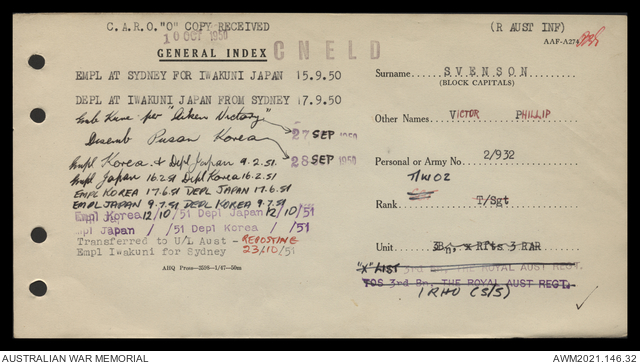 C.A.R.O. "O" COPY RECEIVED
10 OCT 1950
GENERAL INDEX
CNELD
(R AUST INF)
AAF-A274
EMPL AT SYDNEY FOR IWAKUNI JAPAN 15.9.50
DEPL AT IWAKUNI JAPAN FROM SYDNEY 17.9.50
Emb Kure per "Aiken Victory" 27 SEP 1950
Disemb Pusan Korea 28 SEP 1950
Empl Korea & Depl Japan 9.2.51.
Empl Japan 16.2.51 Depl Korea 16.2.51
EMPL KOREA 17.6.51 DEPL JAPAN 17.6.51
EMPL JAPAN 9.7.51 DEPL KOREA 9.7.51
Empl Korea 12/10/51 Depl Japan 12/10/51
mpl Japan / /51 Depl Korea / /51
Transferred to U/L Aust - REPOSTING
Empl Iwakuni for Sydney 23/10/51
AHQ Press—3599—1/47—50m
Surname SVENSON
(BLOCK CAPITALS)
Other Names VICTOR PHILLIP
Personal or Army No. 2/932
T/WO2
Rank T/Sgt
Unit 3Bn, x Rfts 3 RAR
"X" LIST 3rd Bn, THE ROYAL AUST REGT.
TOS 3rd Bn, THE ROYAL AUST REGT.
1 RHU (S/S)
AUSTRALIAN WAR MEMORIAL
AWM2021.146.32